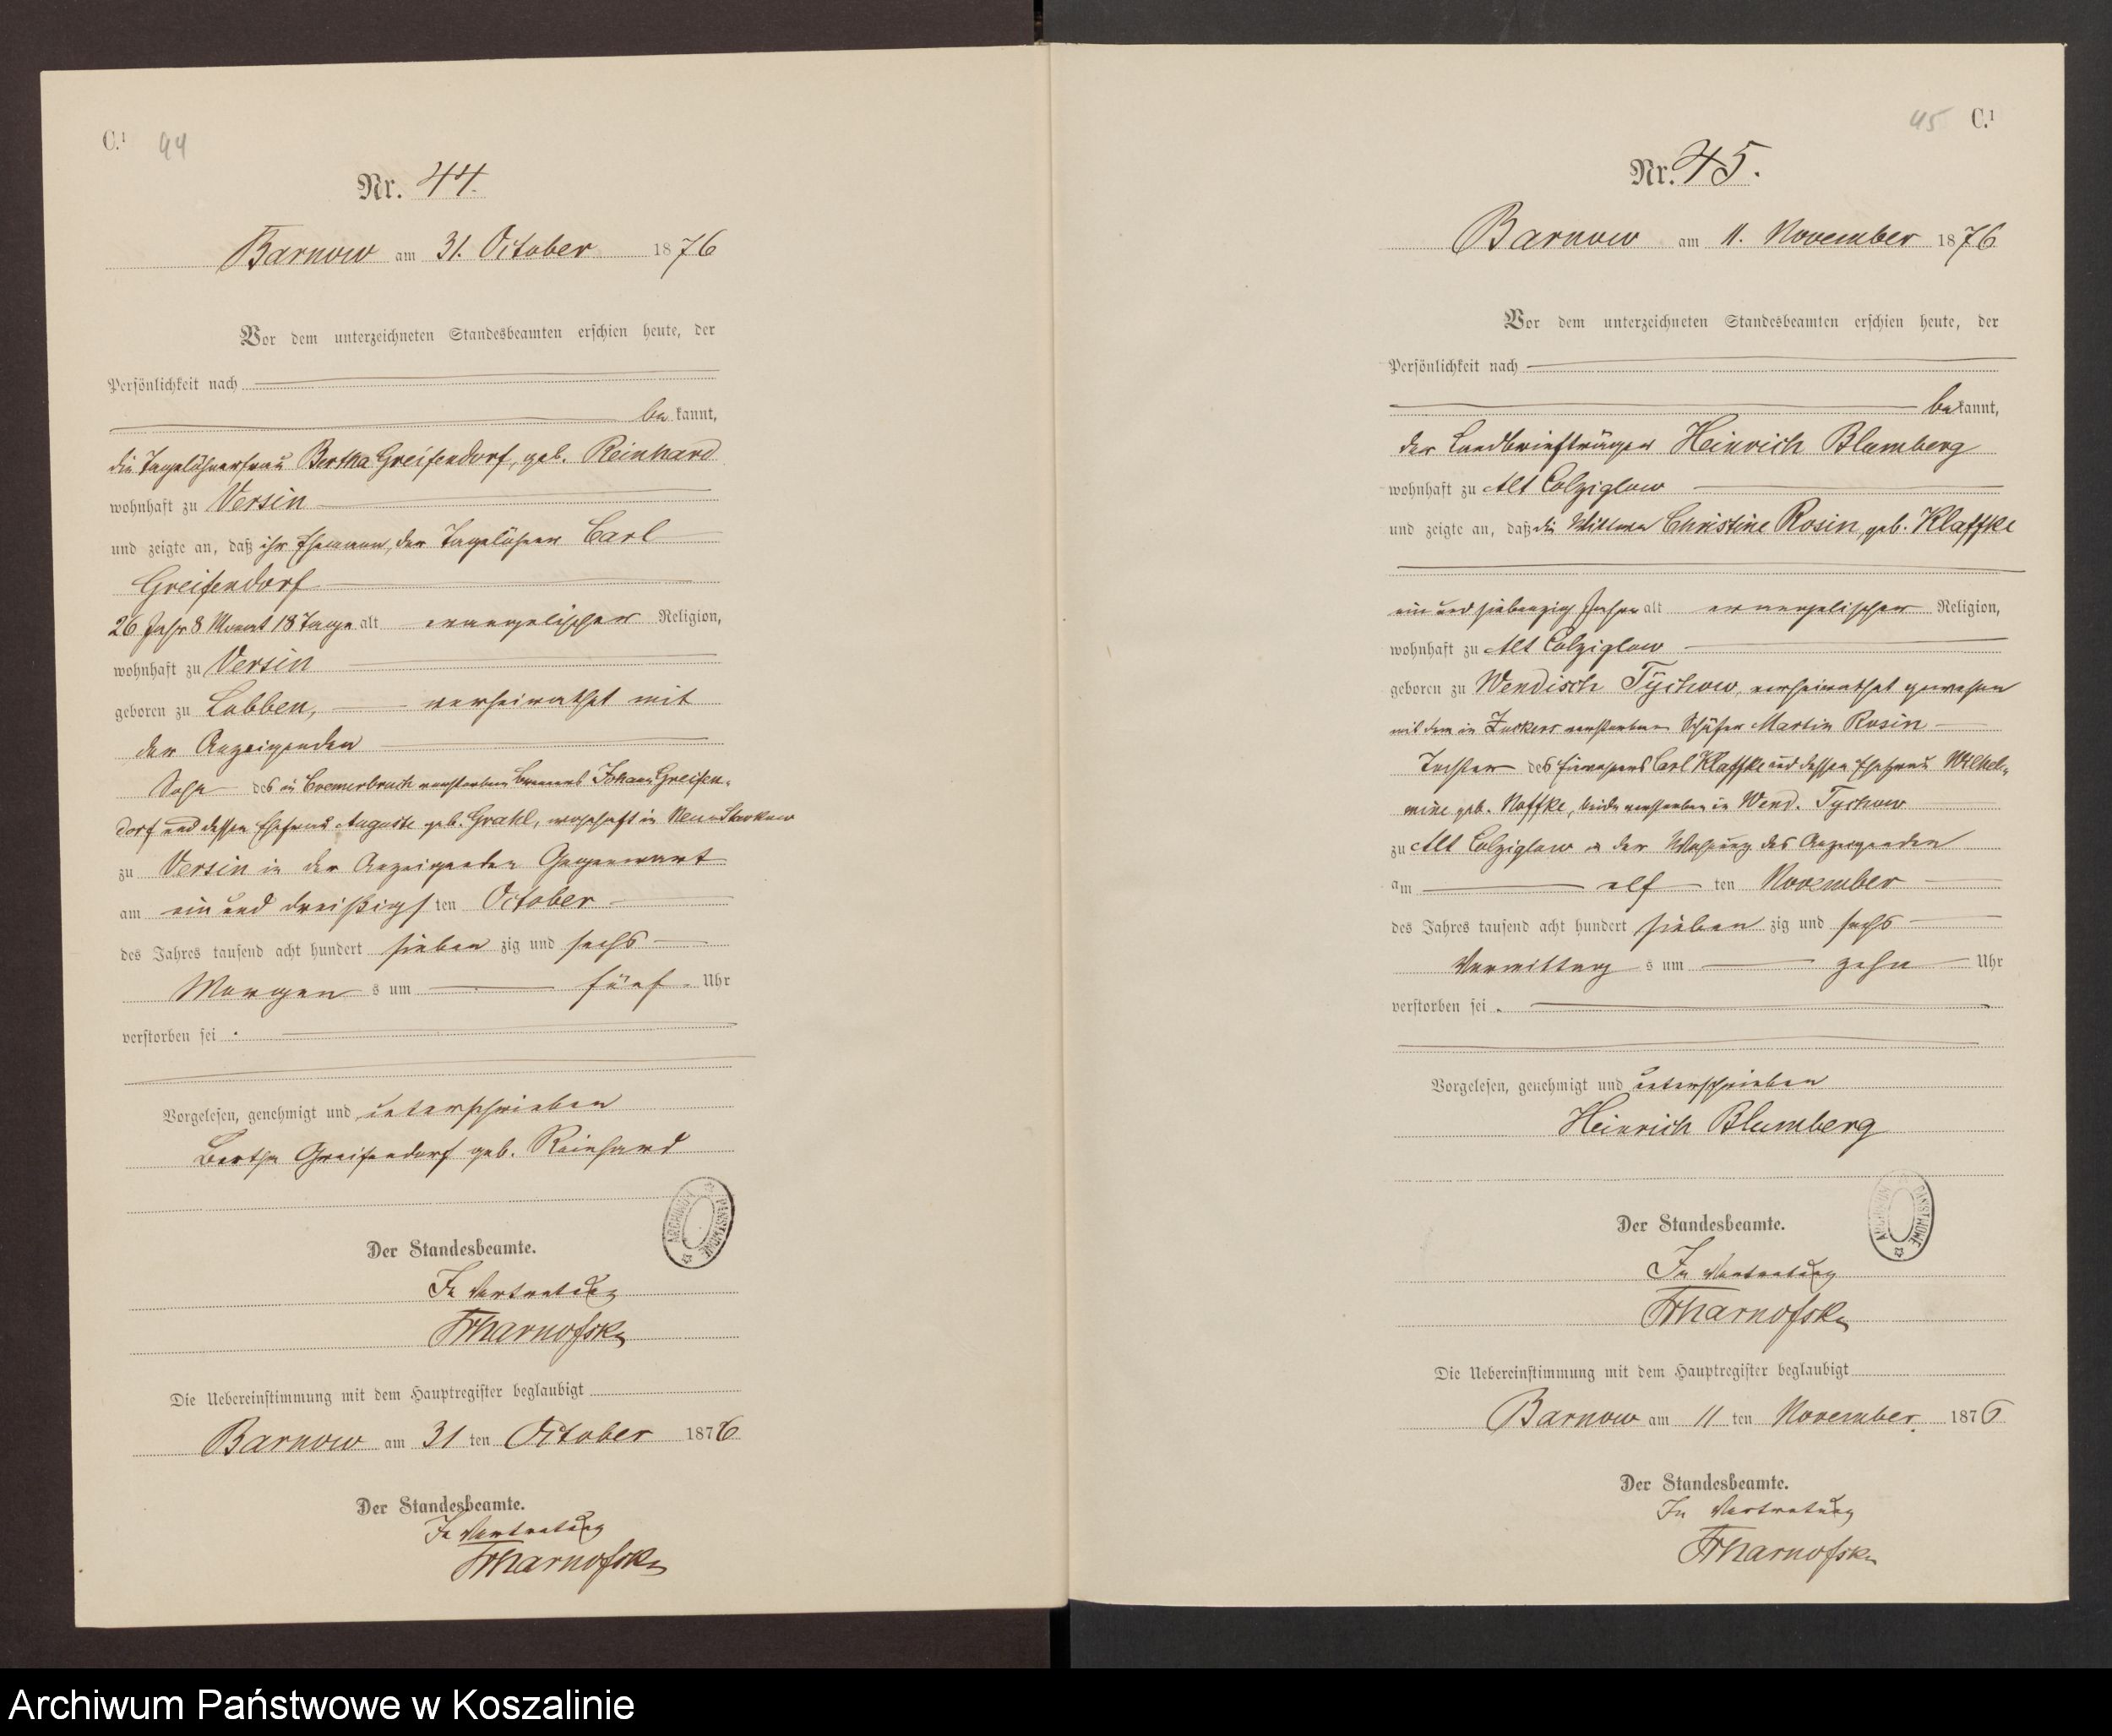 C.¹ 44
Nr. 44.
Barnow am 31. October 1876
Vor dem unterzeichneten Standesbeamten erschien heute, der
Persönlichkeit nach
be kannt,
die Tagelöhnerfrau Bertha Greifendorf, geb. Reinhard
wohnhaft zu Versin
und zeigte an, daß ihr Ehemann, der Tagelöhner Carl
Greifendorf
26 Jahr 8 Monat 18 Tage alt evangelischer Religion,
wohnhaft zu Versin
geboren zu Lubben, verheirathet mit
der Anzeigenden
Sohn des in Cremerbruch verstorbenen Johann Greifen-
dorf und dessen Ehefrau Auguste geb. Grahl, wohnhaft in Neu
zu Versin in der Anzeigenden Gegenwart
am ein und dreißigsten October
des Jahres tausend acht hundert sieben zig und sechs
Morgen s um fünf Uhr
verstorben sei.
Vorgelesen, genehmigt und unterschrieben
Bertha Greifendorf geb. Reinhard
ARCHIWUM PAŃSTWOWE
Der Standesbeamte.
In Vertretung
Die Uebereinstimmung mit dem Hauptregister beglaubigt
Barnow am 31 ten October 1876
Der Standesbeamte.
In Vertretung
45 C.¹
Nr. 45.
Barnow am 11. November 1876
Vor dem unterzeichneten Standesbeamten erschien heute, der
Persönlichkeit nach
be kannt,
der Landbriefträger Heinrich Blumberg
wohnhaft zu Alt Colziglow
und zeigte an, daß die Wittwe Christine Rosin, geb. Klaffke
ein und siebenzig Jahre alt evangelischer Religion,
wohnhaft zu Alt Colziglow
geboren zu Wendisch Tychow, verheirathet gewesen
mit dem in Zuckers verstorbenen Schäfer Martin Rosin
Tochter des Carl Klaffke und dessen Ehefrau Wilhel-
mine geb. Noffke, beide verstorben in Wend. Tychow
zu Alt Colziglow in der Wohnung des Anzeigenden
am elf ten November
des Jahres tausend acht hundert sieben zig und sechs
Vormittag s um zehn Uhr
verstorben sei.
Vorgelesen, genehmigt und unterschrieben
Heinrich Blumberg
ARCHIWUM PAŃSTWOWE
Der Standesbeamte.
In Vertretung
Die Uebereinstimmung mit dem Hauptregister beglaubigt
Barnow am 11 ten November 1876
Der Standesbeamte.
In Vertretung
Archiwum Państwowe w Koszalinie